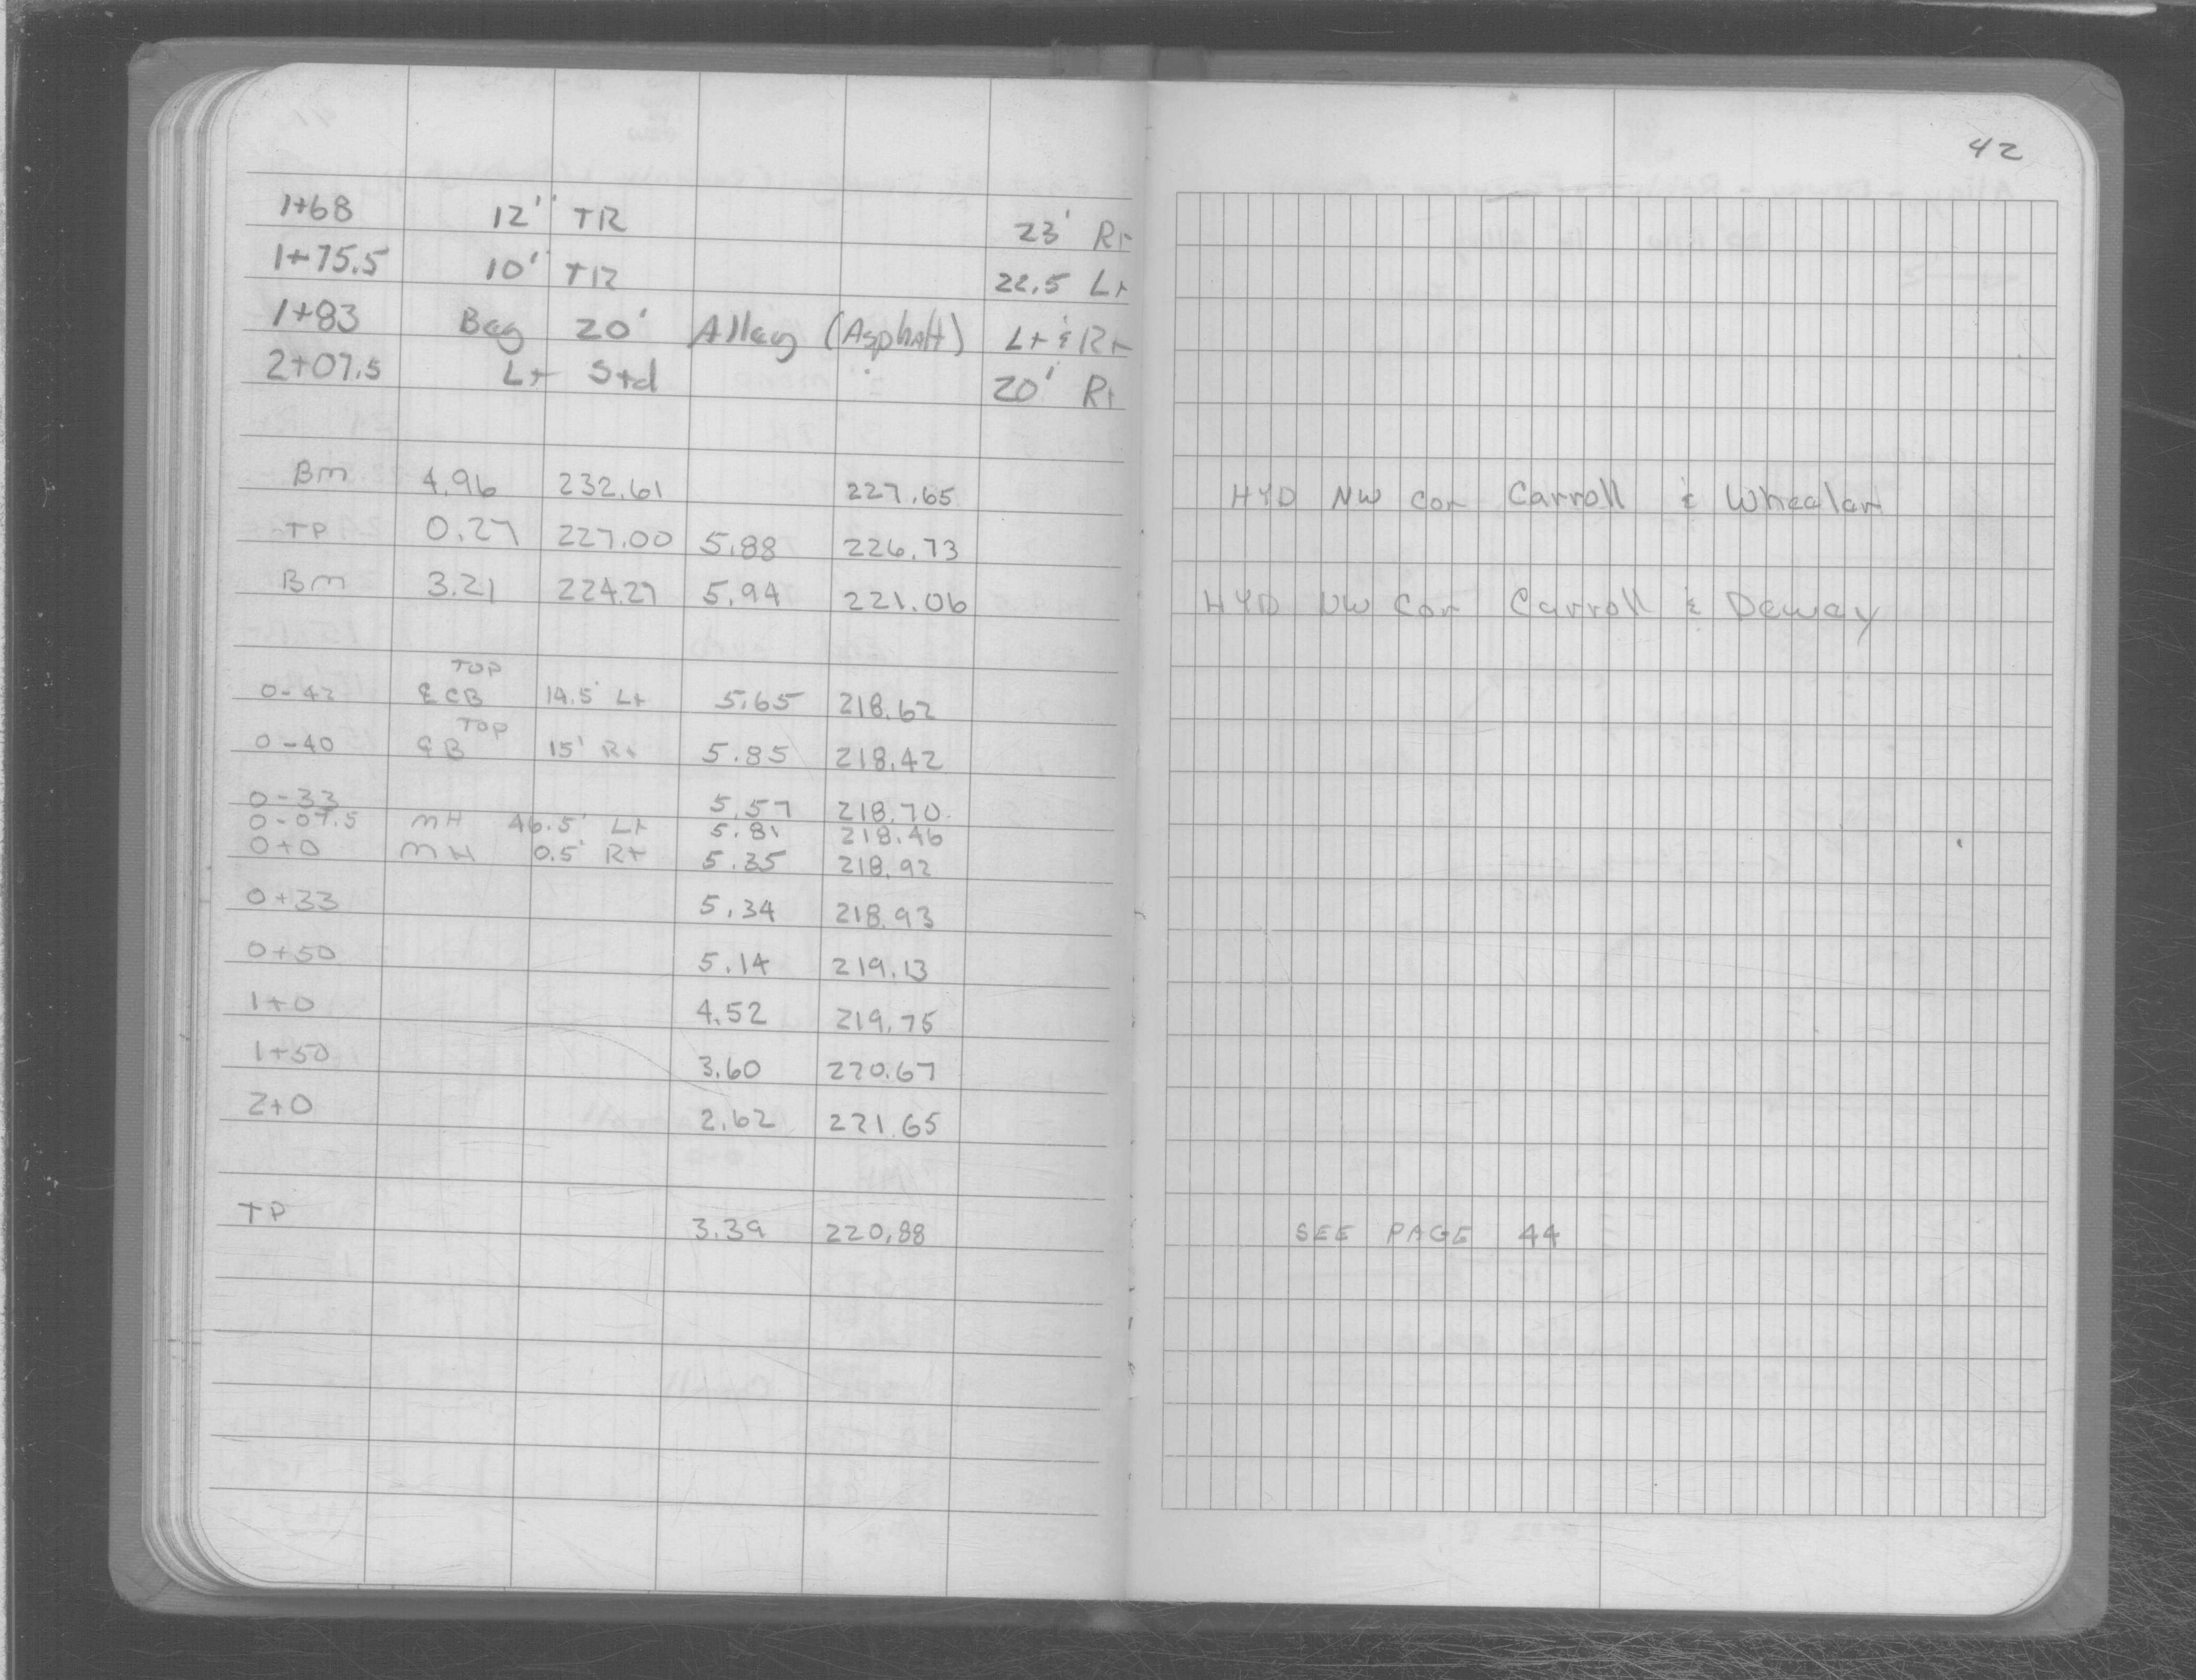 42
1+68 12" TR 23' Rt
1+75.5 10" TR 22.5 Lt
1+83 Beg 20' Alley (Asphalt) Lt & Rt
2+07.5 Lt Std 20' Rt
BM 4.96 232.61 227.65 HYD NW Cor Carroll & Wheeler
TP 0.27 227.00 5.88 226.73
BM 3.21 224.27 5.94 221.06 HYD NW Cor Carroll & Dewey
TOP
0-42 & CB 14.5' Lt 5.65 218.62
TOP
0-40 15' Rt 5.85 218.42
0-33 5.57 218.70
0-07.5 MH 46.5' Lt 5.81 218.46
0+0 MH 0.5' Rt 5.35 218.92
0+33 5.34 218.93
0+50 5.14 219.13
1+0 4.52 219.75
1+50 3.60 220.67
2+0 2.62 221.65
TP 3.39 220.88 SEE PAGE 44